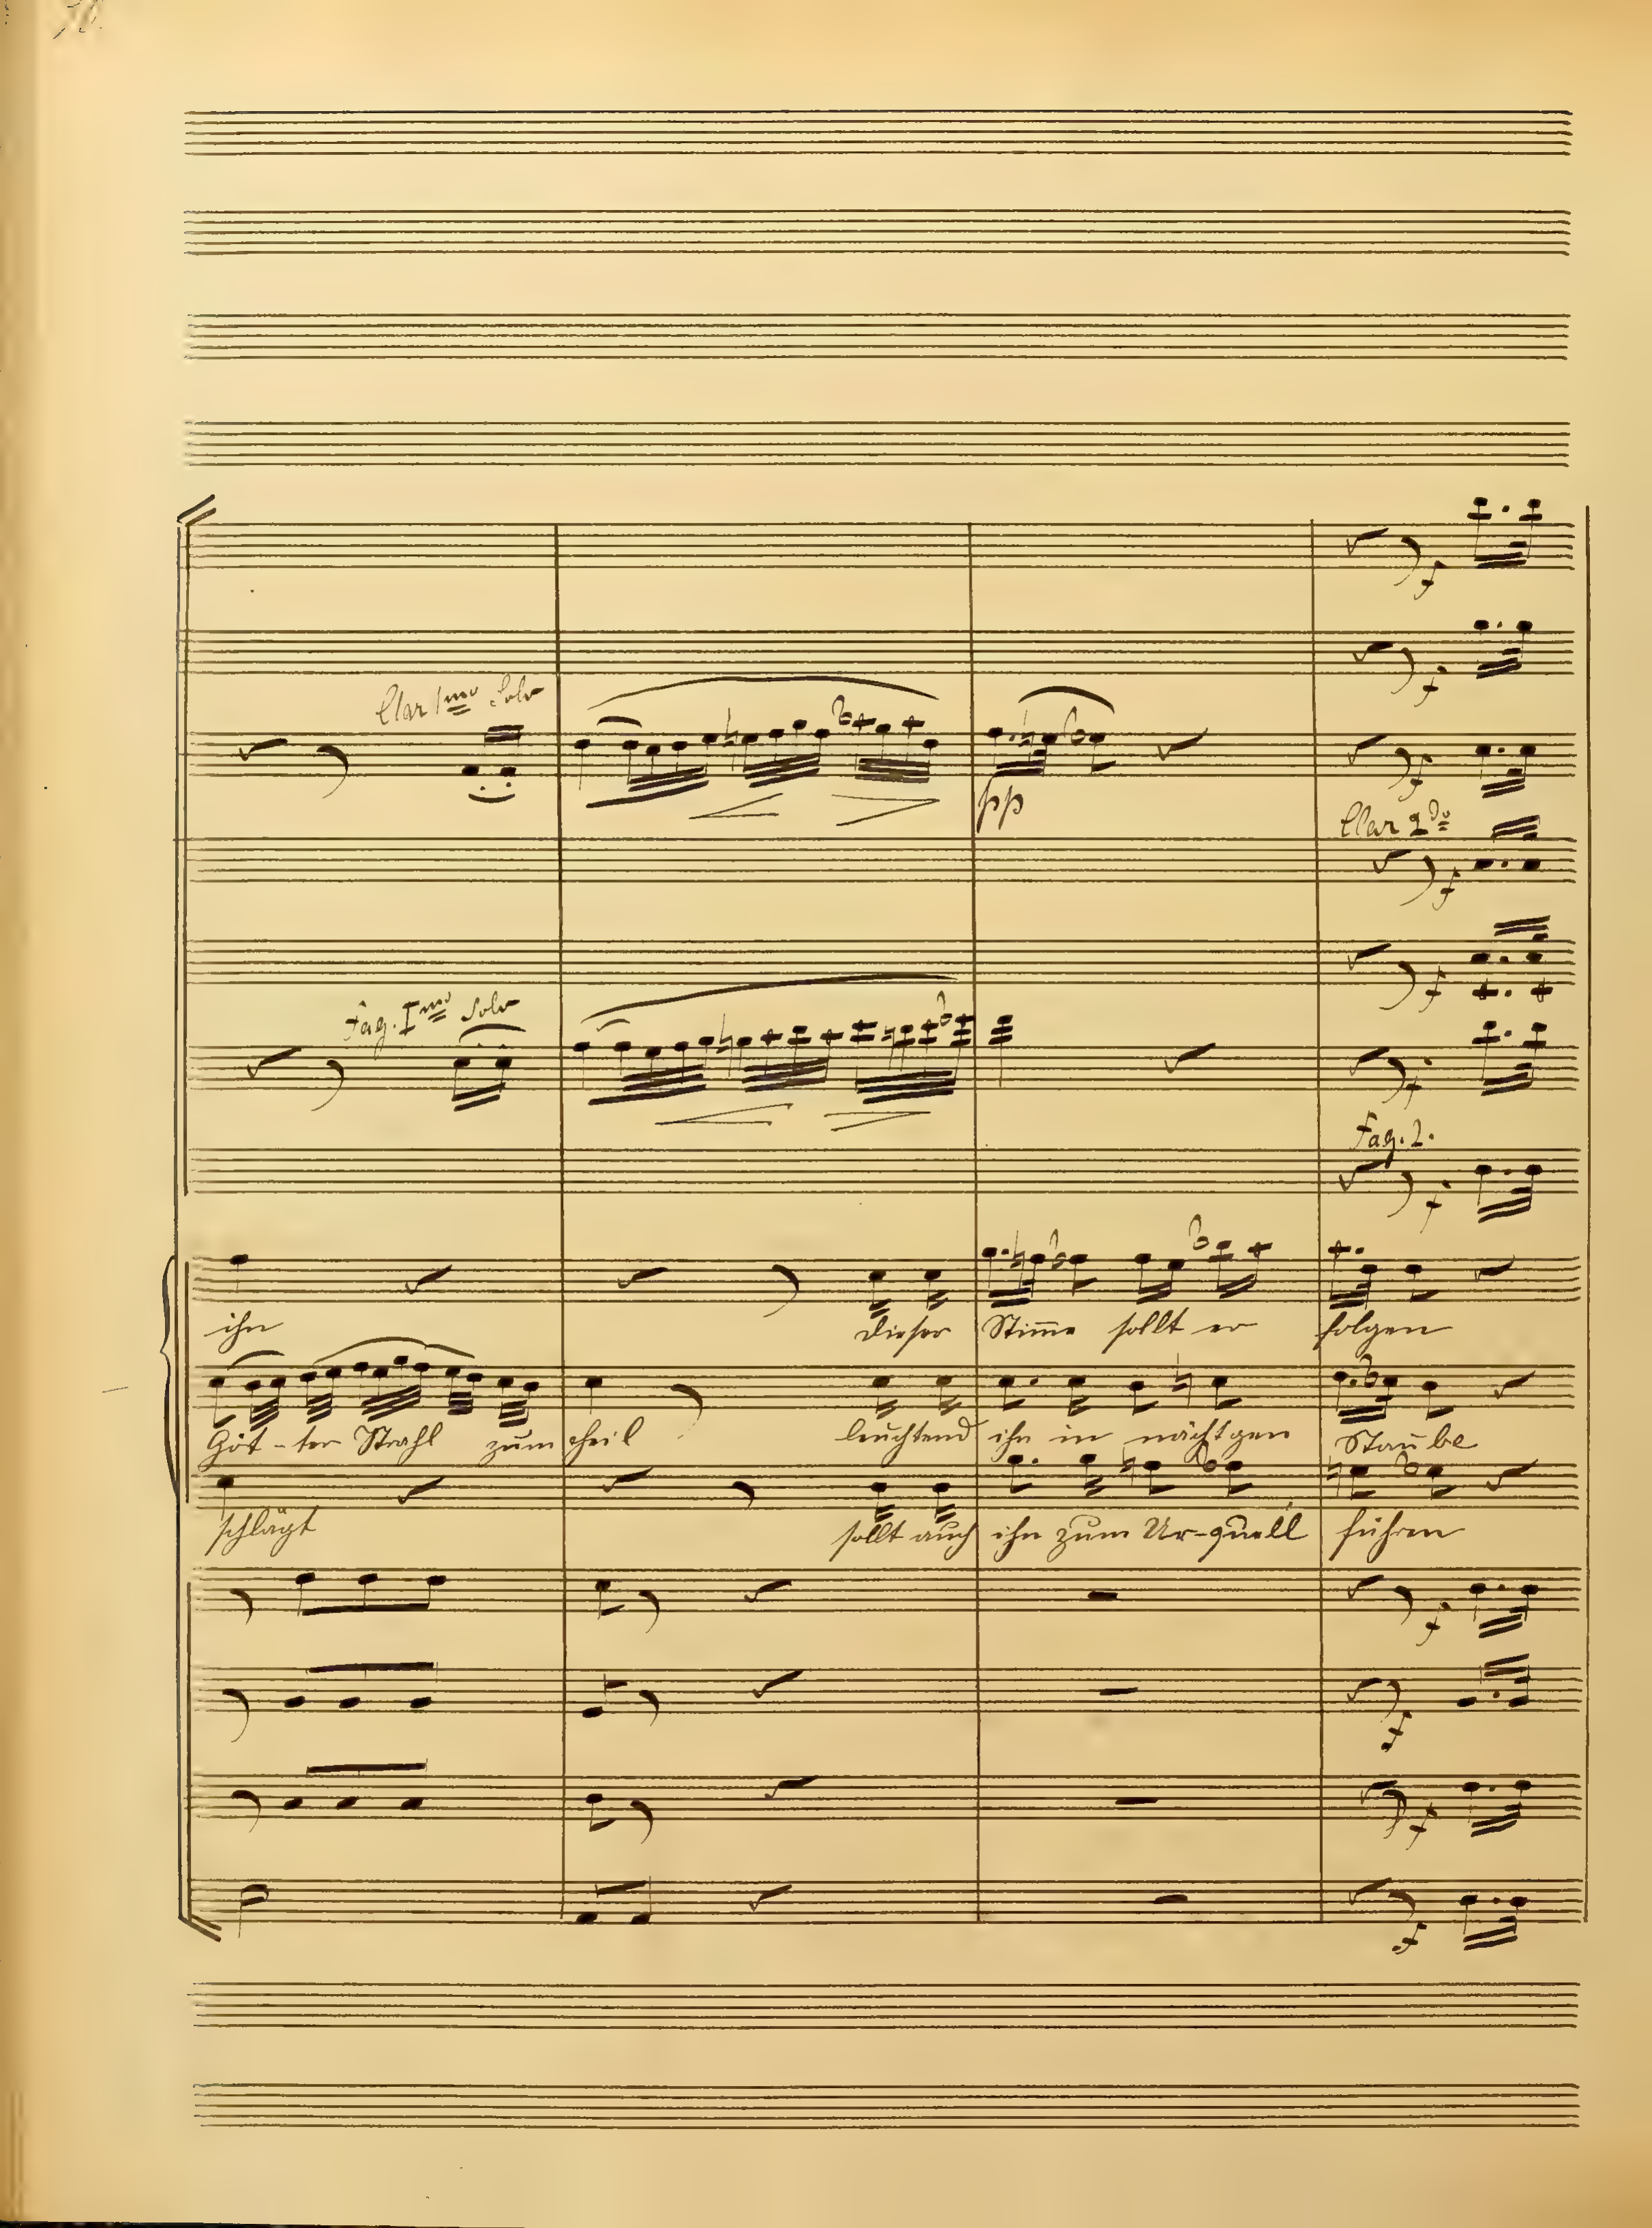 f
f
Clar 1mo Solo
f
pp
Clar 2do
f
f
Fag. Imo Solo
f
Fag. 2.
f
ihn dieser Stim̄e sollt er folgen
Göt-ter Strahl zum theil leuchtend ihn in nächtgen Staube
schlägt sollt auch ihn zum Ur-quell führen
f
f
f
f